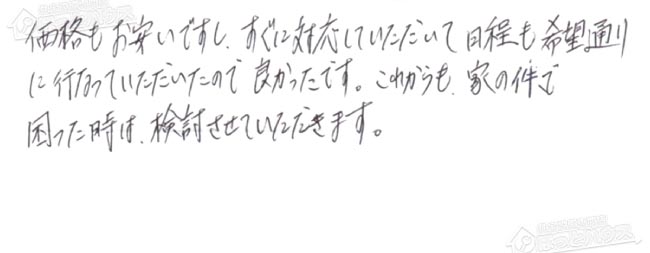 価格もお安いですし、すぐに対応していただいて日程も希望通り
に行なっていただいたので良かったです。これからも、家の件で
困った時は、検討させていただきます。